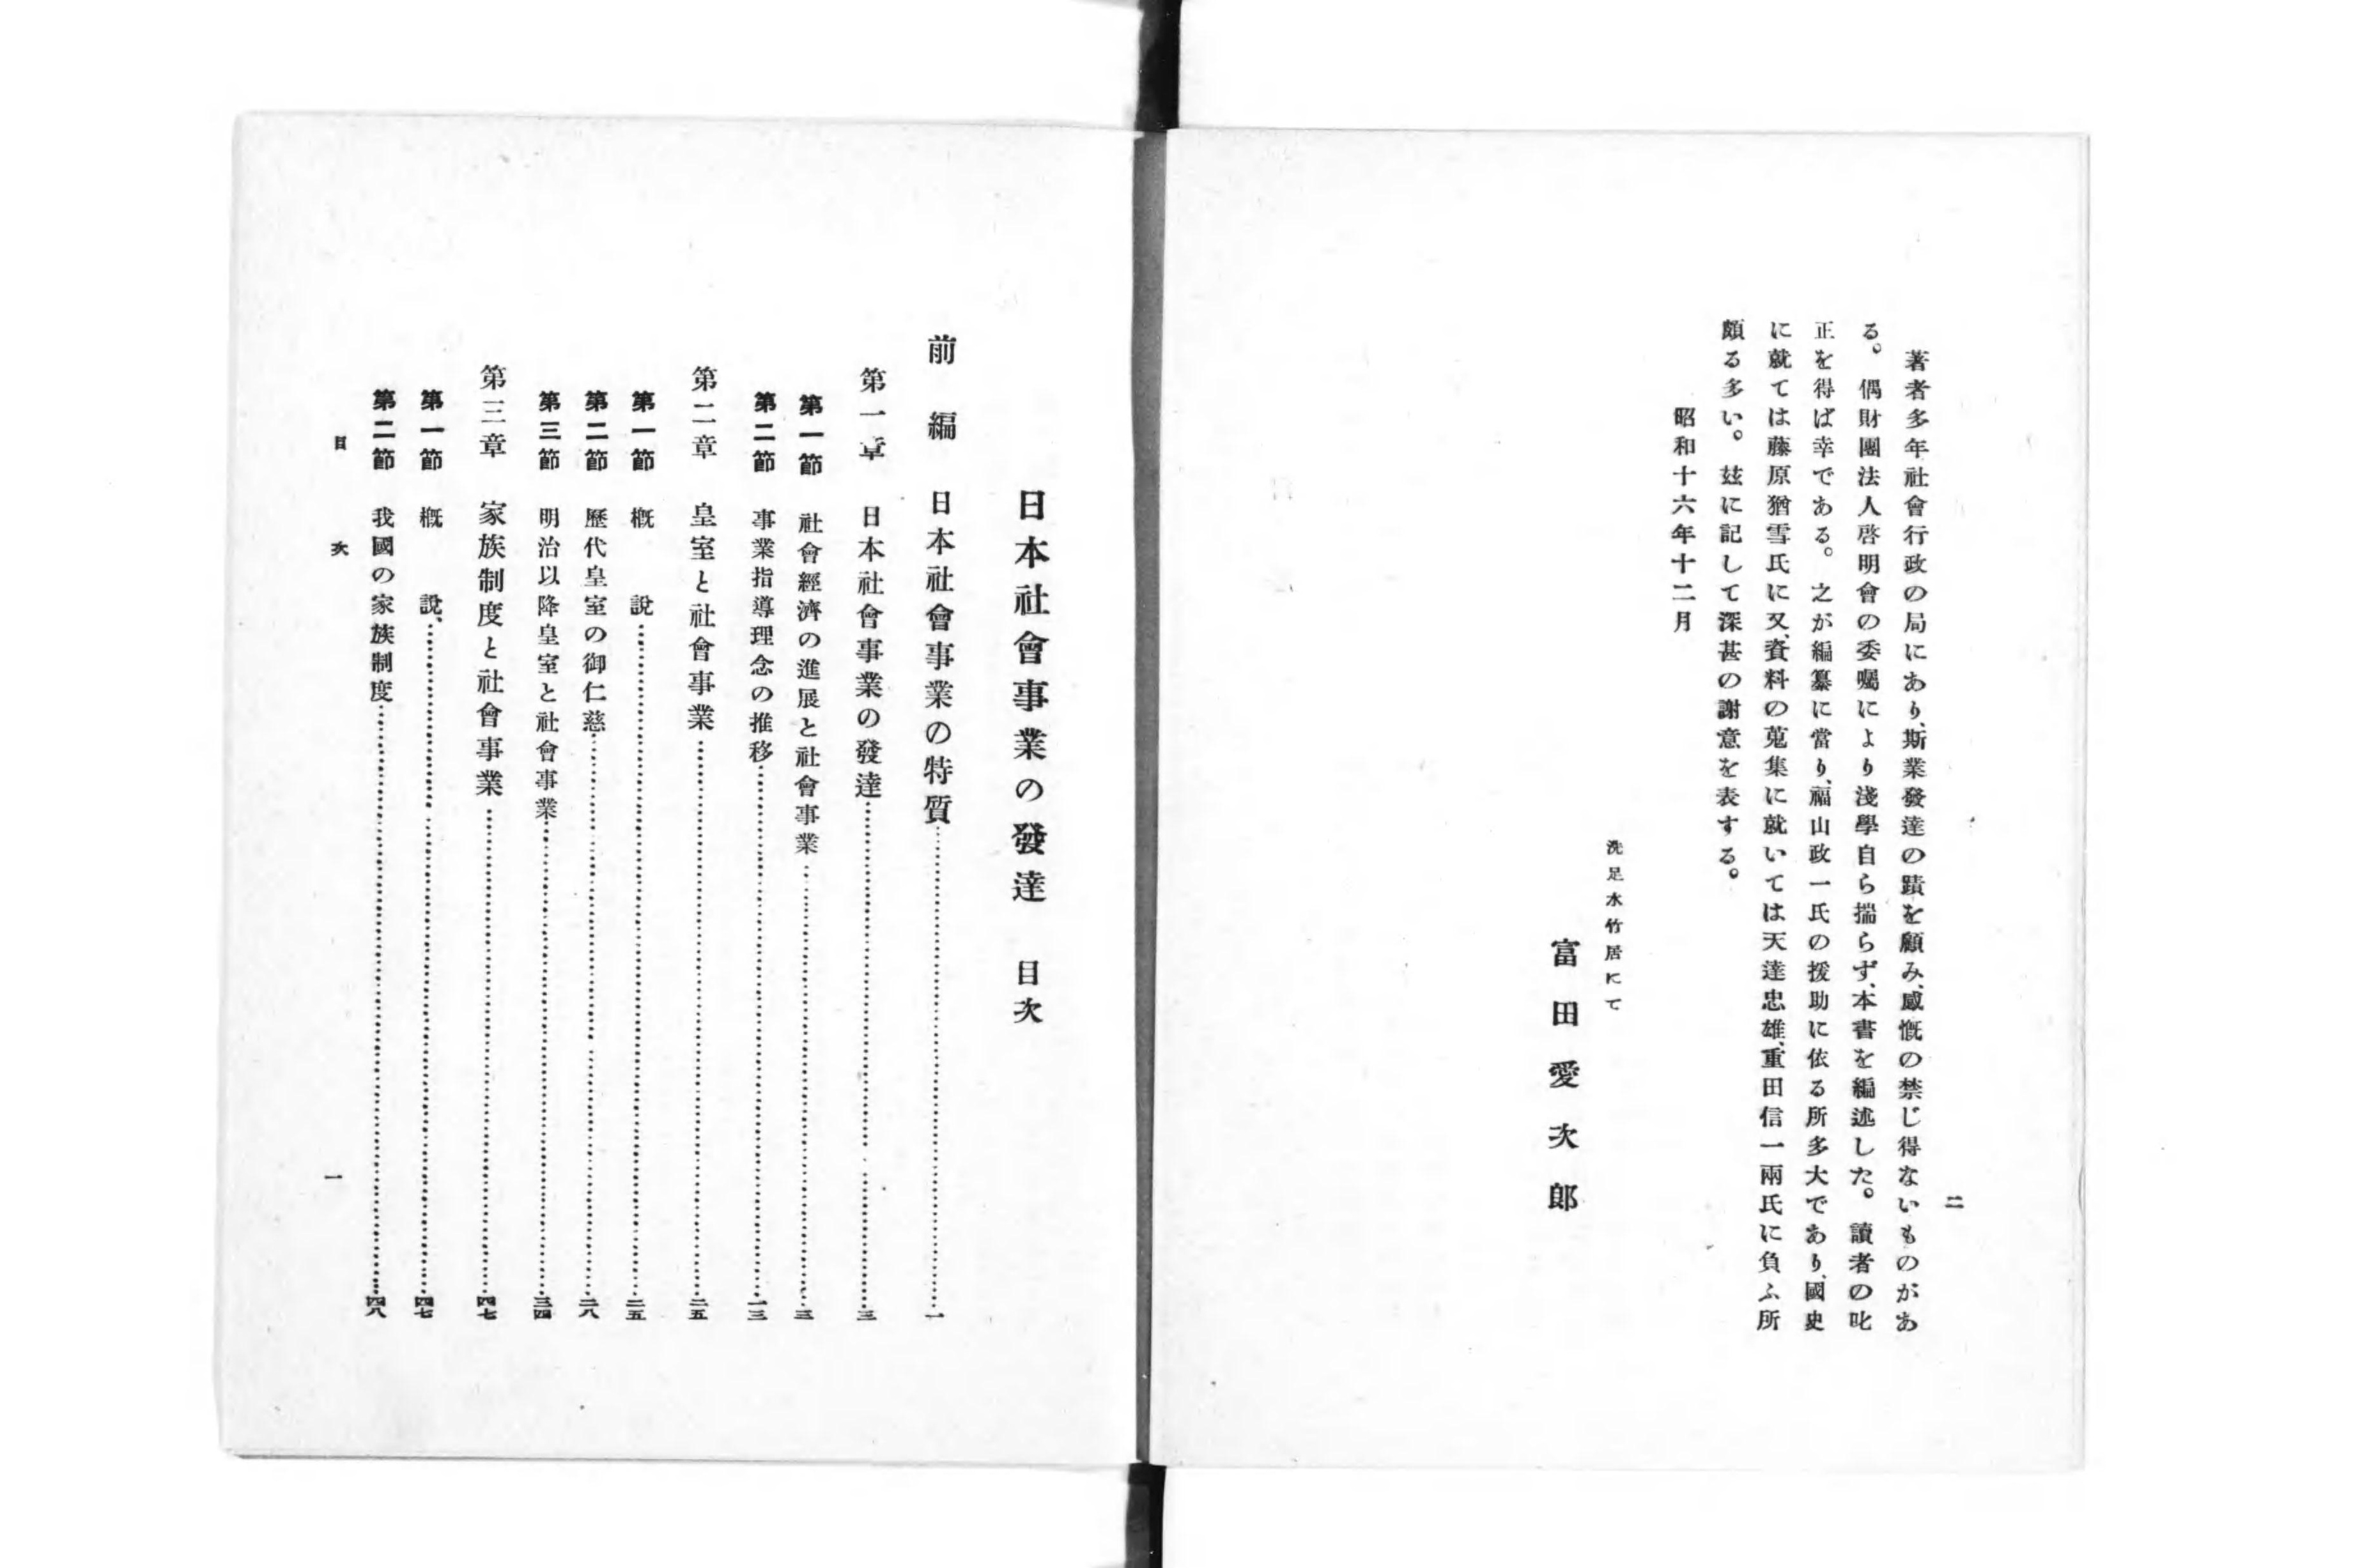 二
著者多年社會行政の局にあり、斯業發達の蹟を顧み、感慨の禁じ得ないものがあ
る。偶財團法人啓明會の委囑により淺學自ら揣らず、本書を編述した。讀者の叱
正を得ば幸である。之が編纂に當り、福山政一氏の援助に依る所多大であり、國史
に就ては藤原猶雪氏に又、資料の蒐集に就いては天達忠雄、重田信一兩氏に負ふ所
頗る多い。玆に記して深甚の謝意を表する。
昭和十六年十二月
洗足水竹居にて
富田愛次郎
日本社會事業の發達 目次
前編 日本社會事業の特質……一
第一章 日本社會事業の發達……三
第一節 社會經濟の進展と社會事業……三
第二節 事業指導理念の推移……一三
第二章 皇室と社會事業……二五
第一節 概說……二五
第二節 歷代皇室の御仁慈……二八
第三節 明治以降皇室と社會事業……三四
第三章 家族制度と社會事業……四七
第一節 概說……四七
第二節 我國の家族制度……四八
目次 一